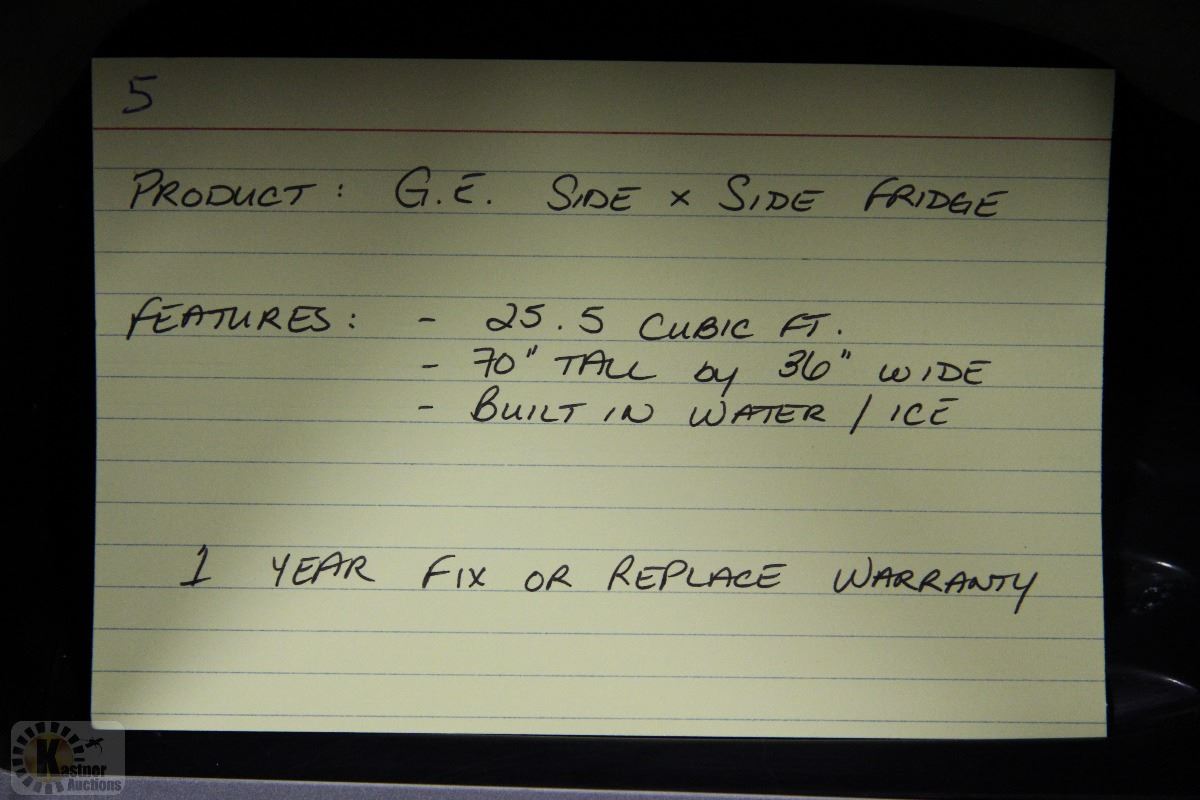 5
PRODUCT: G.E. SIDE x SIDE FRIDGE
FEATURES: - 25.5 CUBIC FT.
- 70" TALL by 36" WIDE
- BUILT IN WATER / ICE
1 YEAR FIX OR REPLACE WARRANTY
Kastner
Auctions